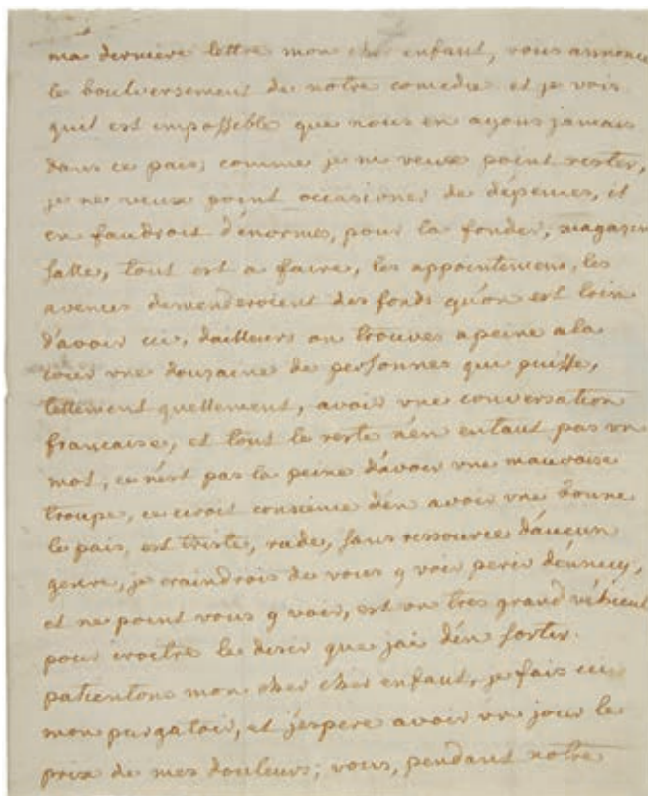 ma derniere lettre mon cher enfant, vous annonce
le boulversement de notre comedie et je vois
quil est impossible que nous en ayons jamais
dans ce pais, comme je ne veux point rester,
je ne veux point occasioner de dépences, il
en faudroit dénormes, pour la fonder, magazin
salle, tout est a faire, les appointemens, les
avences demenderoient des fonds qu'on est loin
d'avoir ici, dailleurs on trouves apeine a la
cour une dousaine de personnes qui puisse,
tellement quellement, avoir une conversation
francaise, et tout le reste n'en entant pas un
mot, ce n'est pas la peine d'avoir une mauvaise
troupe, ce ciroit consience d'en avoir une bonne
le pais, est triste, rude, sans ressource d'aucun
genre, je craindrois de vous y voir perir d'ennuy,
et ne point vous y voir, est un tres grand véhicul
pour croitre le desir que jai d'en sortir.
patientons mon cher cher enfant, je fais ici
mon purgatoir, et j'espere avoir un jour le
prix de mes douleurs; vous, pendant notre